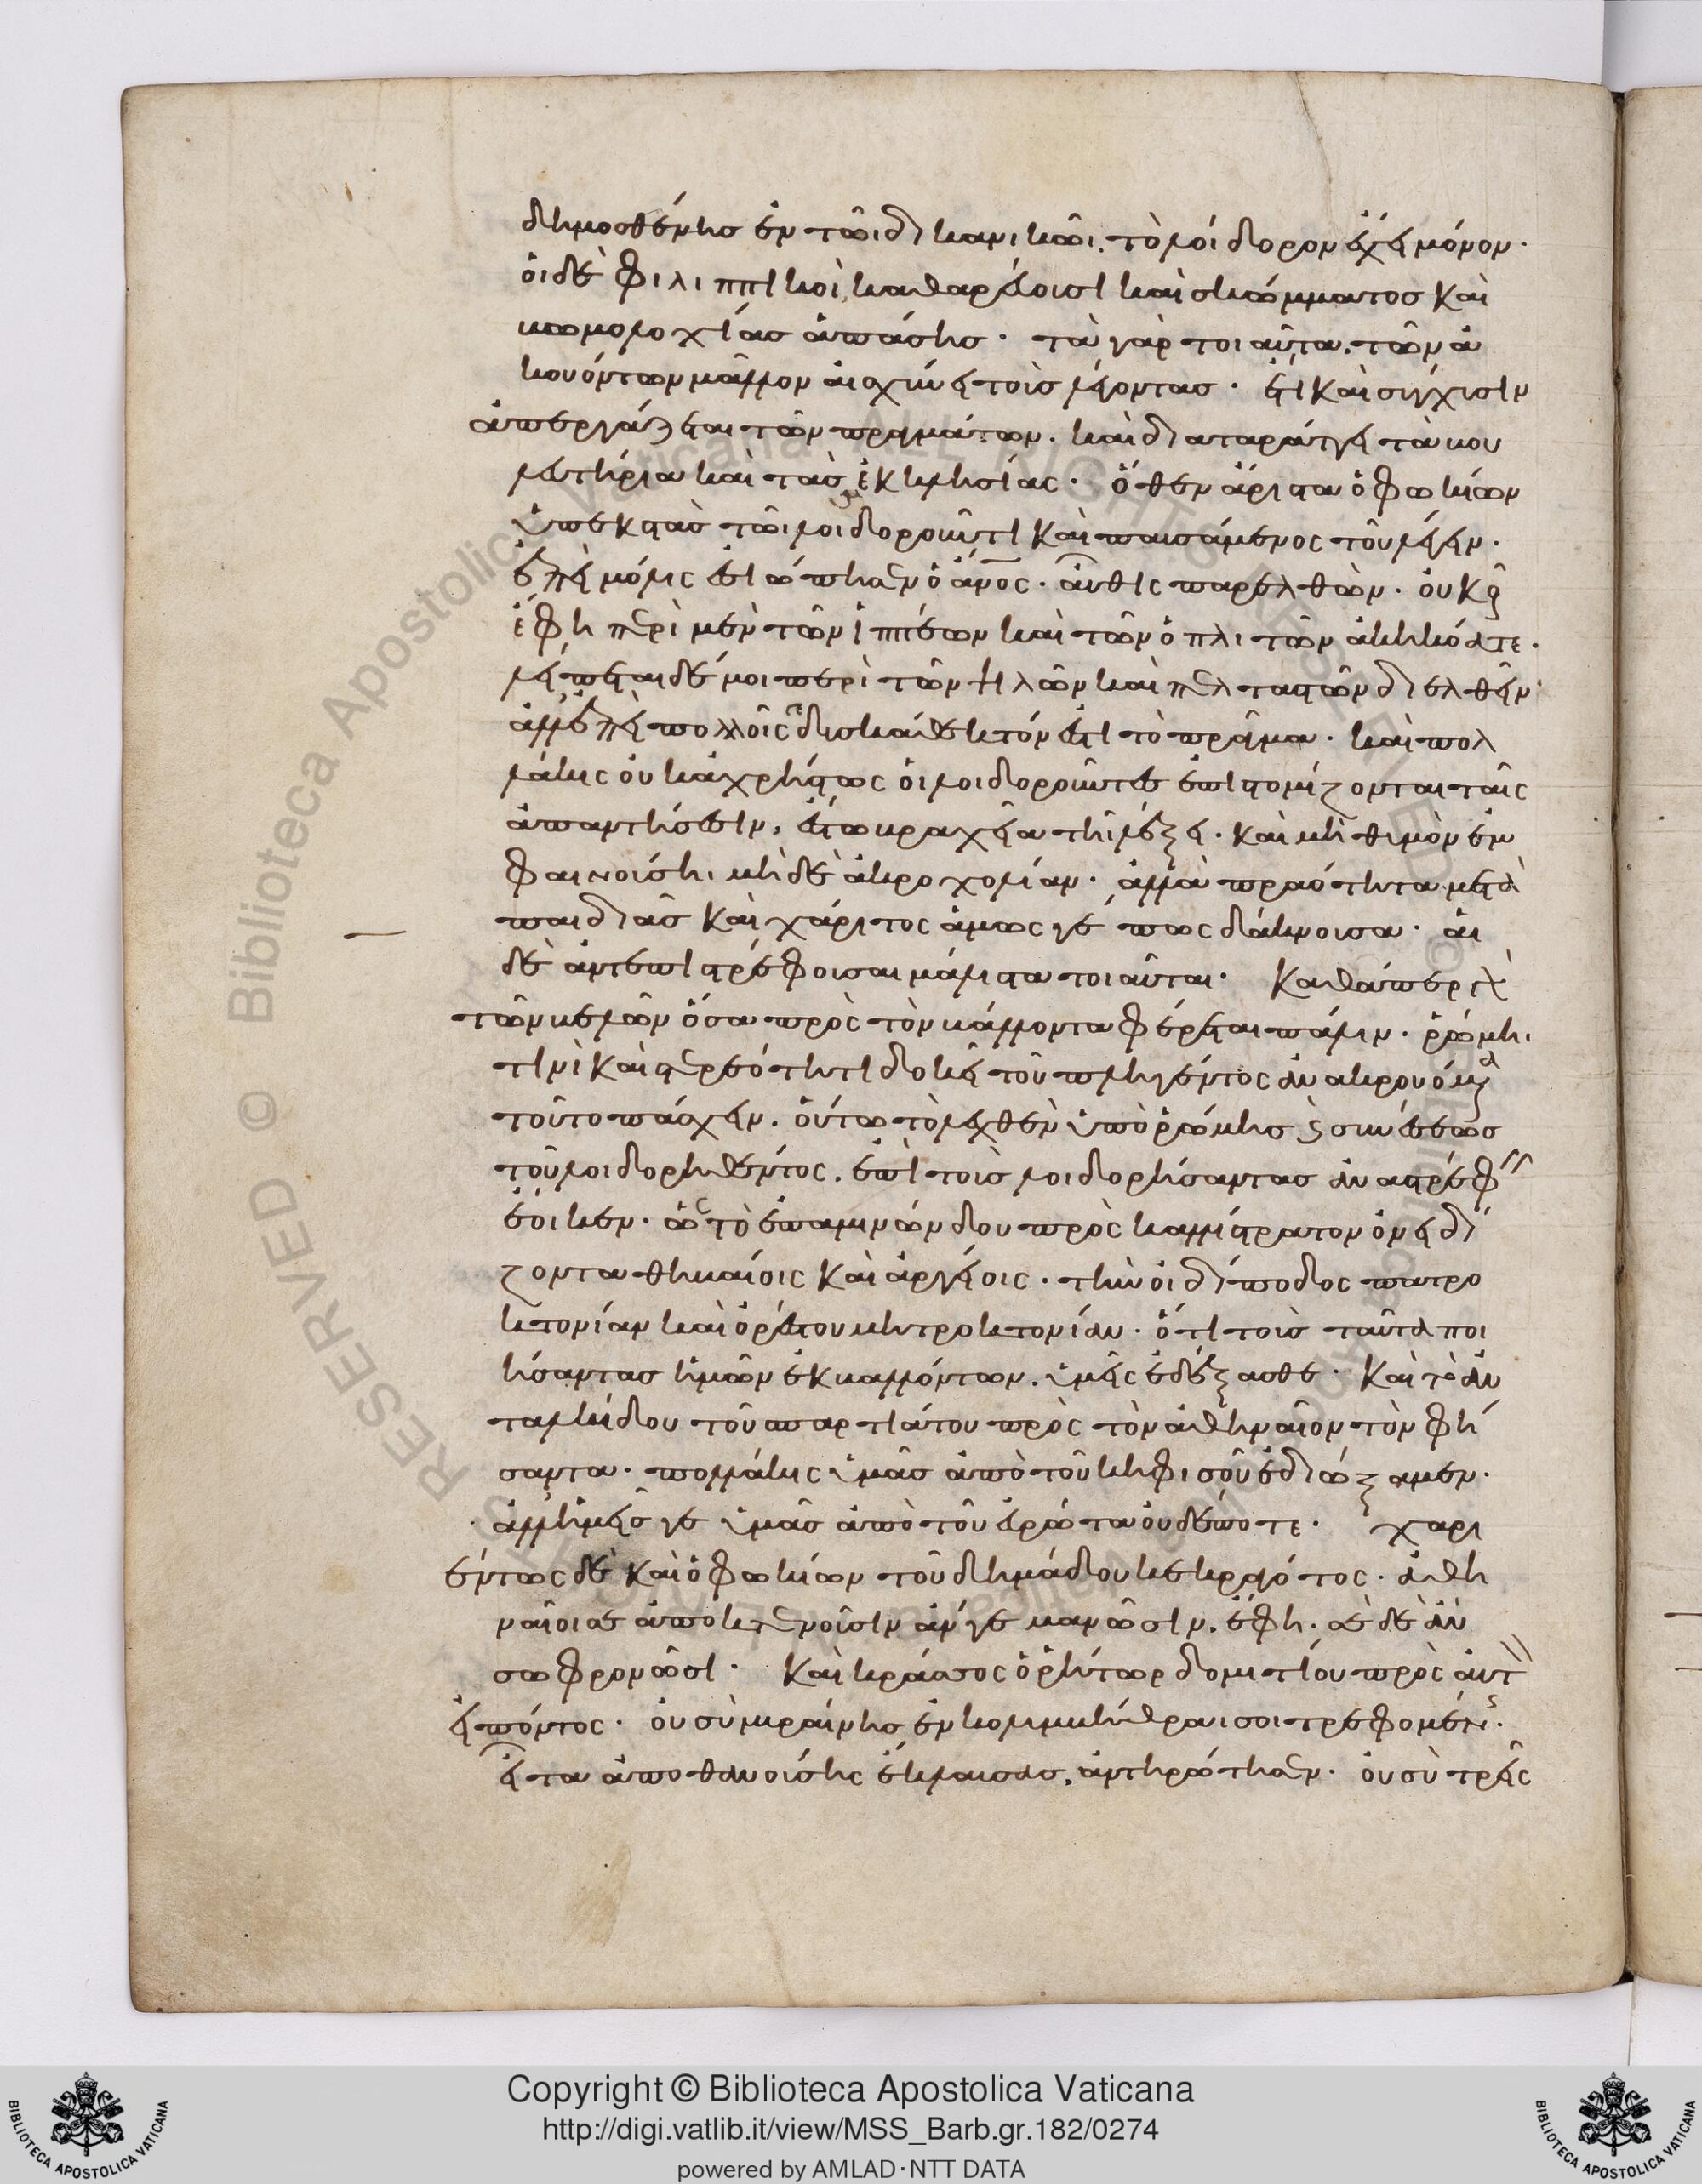 δημοσθένης ἐν τῶι δικανικῶι. τὸ λοίδορον ἔχει μόνον·
οἱ δὲ φιλιππικοὶ, καθαρεύουσι καὶ σκώμματος καὶ
βωμολοχίας ἁπάσης· τὰ γὰρ τοιαῦτα. τῶν ἀ
κουόντων μᾶλλον αἰσχύνει τοὺς λέγοντας· ἔτι καὶ σύγχυσιν
ἀπεργάζεται τῶν πραγμάτων. καὶ διαταράττει τὰ βου
λευτήρια καὶ τὰς ἐκκλησίας· ὅθεν ἄριστα ὁ φωκίων
ὑπεκστὰς τῶι λοιδοροῦντι καὶ παυσάμενος τοῦ λέγειν.
ἐπεὶ μόλις ἐσιώπησεν ὁ ἄνος. αὖθις παρελθὼν. οὐκοῦν
ἔφη περὶ μὲν τῶν ἱππέων καὶ τῶν ὁπλιτῶν ἀκηκόατε.
λείπεται δέ μοι περὶ τῶν ψιλῶν καὶ πελταστῶν διελθεῖν·
ἀλλ' ἐπεὶ πολλοῖς γε δυσκάθεκτόν ἐστι τὸ πρᾶγμα· καὶ πολ
λάκις οὐκ ἀχρήστως οἱ λοιδοροῦντες ἐπιστομίζονται ταῖς
ἀπαντήσεσιν, ἔστω βραχεῖα τῆι λέξει. καὶ μὴ θυμὸν ἐμ
φαίνουσα. μὴ δὲ ἀκροχολίαν· ἀλλὰ πραότητα μετὰ
παιδιᾶς καὶ χάριτος ἁμῶς γέ πως δάκνουσα· αἱ
δὲ ἀντεπιστρέφουσαι μάλιστα τοιαῦται· Καθάπερ γὰρ
τῶν βελῶν ὅσα πρὸς τὸν βάλλοντα φέρεται πάλιν. ῥώμηι
τινὶ καὶ στερεότητι δοκεῖ τοῦ πληγέντος ἀνακρουόμενα
τοῦτο πάσχειν. οὕτω τὸ λεχθὲν ὑπὸ ῥώμης καὶ συνέσεως
τοῦ λοιδορηθέντος. ἐπὶ τοὺς λοιδορήσαντας ἀναστρέφειν
ἔοικεν. ὡς τὸ ἐπαμινώνδου πρὸς καλλίστρατον ὀνειδί
ζοντα θηβαίοις καὶ ἀργείοις. τὴν οἰδίποδος πατρο
κτονίαν καὶ ὀρέστου μητροκτονίαν. ὅτι τοὺς ταῦτα ποι
ήσαντας ἡμῶν ἐκβαλλόντων. ὑμεῖς ἐδέξασθε· Καὶ τὸ ἀν
ταλκίδου τοῦ σπαρτιάτου πρὸς τὸν ἀθηναῖον τὸν φή
σαντα. πολλάκις ὑμᾶς ἀπὸ τοῦ κηφισοῦ ἐδιώξαμεν.
ἀλλ' ἡμεῖς γε ὑμᾶς ἀπὸ τοῦ εὐρώτα οὐδέποτε· χαρι
έντως δὲ καὶ ὁ φωκίων τοῦ δημάδου κεκραγότος. ἀθη
ναῖοί σε ἀποκτενοῦσιν ἄν γε μανῶσιν. ἔφη. σὲ δὲ ἂν
σωφρονῶσι· Καὶ κράσσος ὁ ῥήτωρ δομιτίου πρὸς αὐτὸν
εἰπόντος. οὐ σὺ μυραίνης ἐν κολυμβήθραι σοι τρεφομένης.
εἶτα ἀποθανούσης ἔκλαυσας, ἀντηρώτησεν. οὐ σὺ τρεῖς